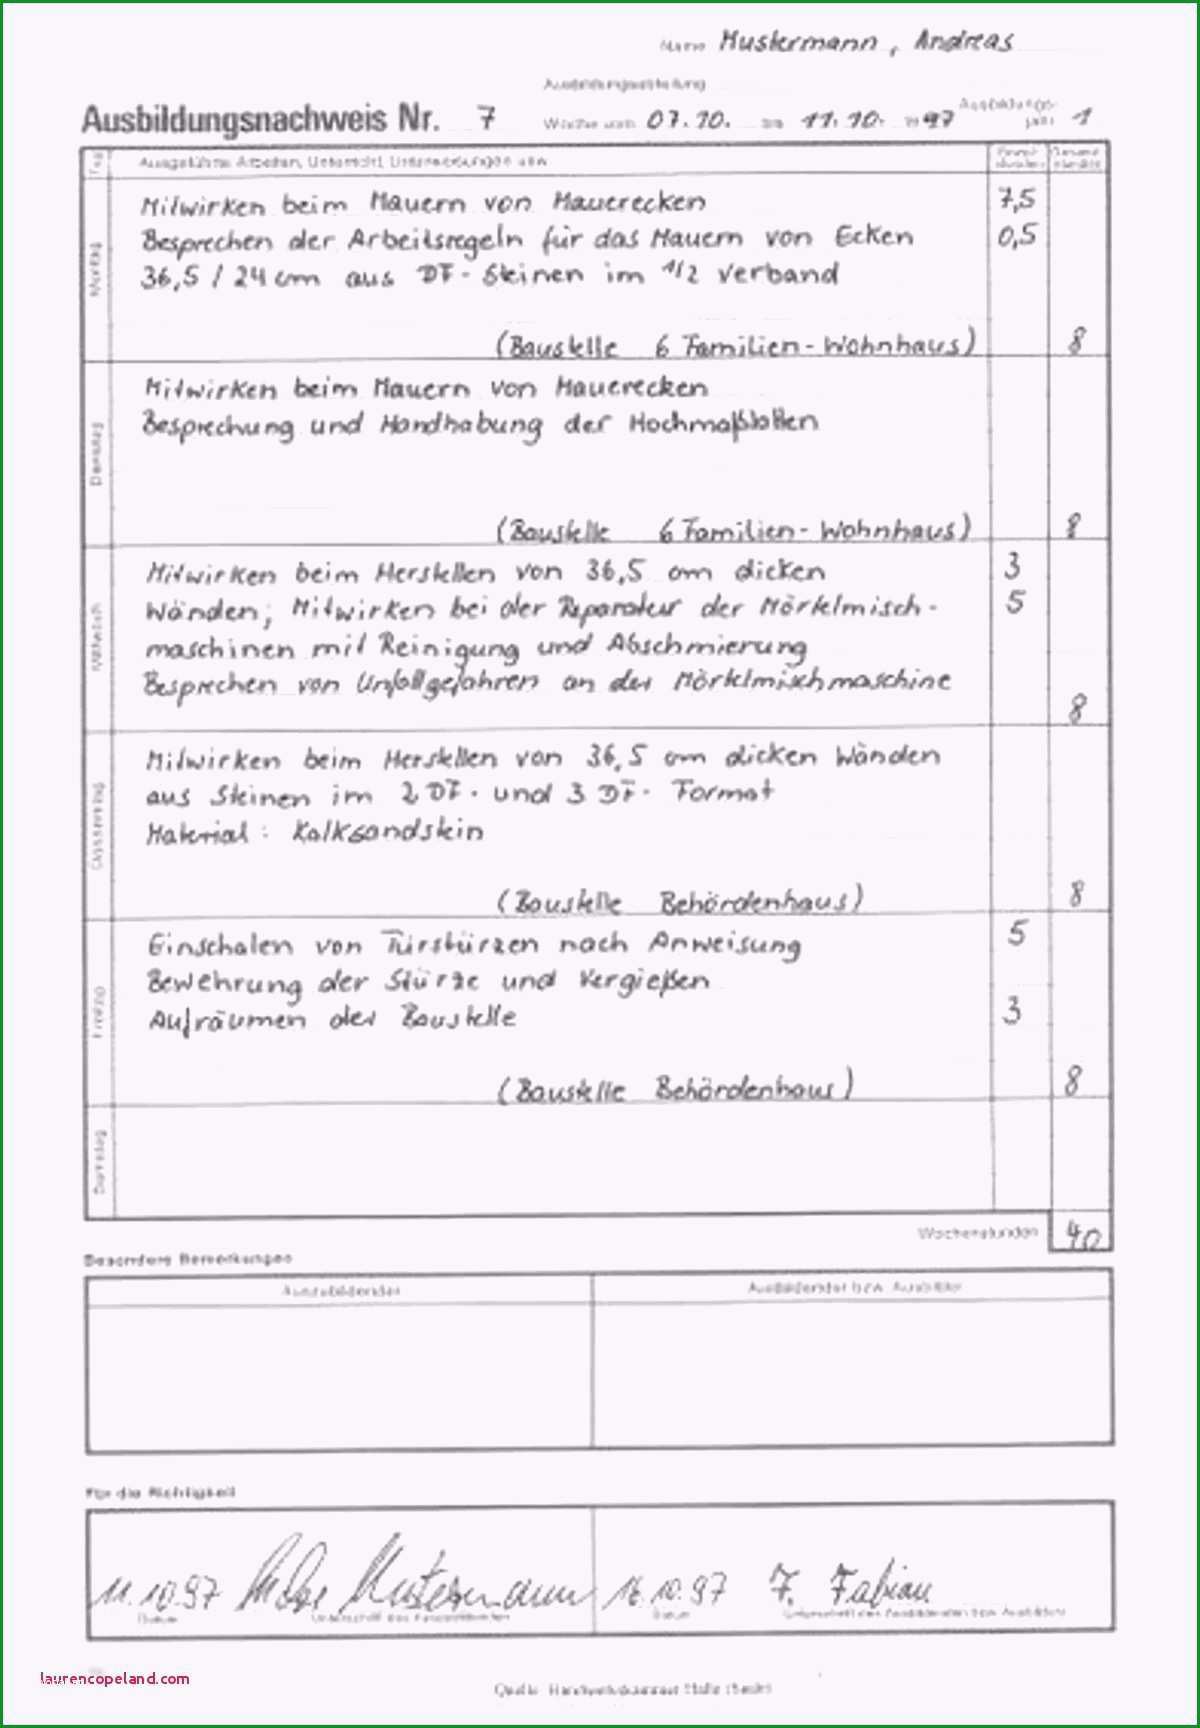 Name Mustermann, Andreas
Ausbildungsabteilung
Ausbildungsnachweis Nr. 7 Woche vom 07.10. bis 11.10. 1997 Ausbildungs-
jahr 1
Tag Ausgeführte Arbeiten, Unterricht, Unterweisungen usw. Einzel-
stunden Gesamt-
stunden
Montag
Mitwirken beim Mauern von Mauerecken 7,5
Besprechen der Arbeitsregeln für das Mauern von Ecken 0,5
36,5 / 24 cm aus DF-Steinen im 1/2 Verband
(Baustelle 6 Familien-Wohnhaus) 8
Dienstag
Mitwirken beim Mauern von Mauerecken
Besprechung und Handhabung der Hochmaßlatten
(Baustelle 6 Familien-Wohnhaus) 8
Mittwoch
Mitwirken beim Herstellen von 36,5 cm dicken 3
Wänden; Mitwirken bei der Reparatur der Mörtelmisch- 5
maschinen mit Reinigung und Abschmierung
Besprechen von Unfallgefahren an der Mörtelmischmaschine
8
Donnerstag
Mitwirken beim Herstellen von 36,5 cm dicken Wänden
aus Steinen im 2 DF- und 3 DF- Format
Material: Kalksandstein
(Baustelle Behördenhaus) 8
Freitag
Einschalen von Türstürzen nach Anweisung 5
Bewehrung der Stürze und Vergießen
Aufräumen der Baustelle 3
(Baustelle Behördenhaus) 8
Samstag
Wochenstunden 40
Besondere Bemerkungen
Auszubildender Ausbildender bzw. Ausbilder
Für die Richtigkeit
11.10.97 Mustermann 16.10.97 F. Fabian
Datum Unterschrift des Auszubildenden Datum Unterschrift des Ausbildenden bzw. Ausbilders
laurencopeland.com
Quelle: Handwerkskammer Halle (Saale)